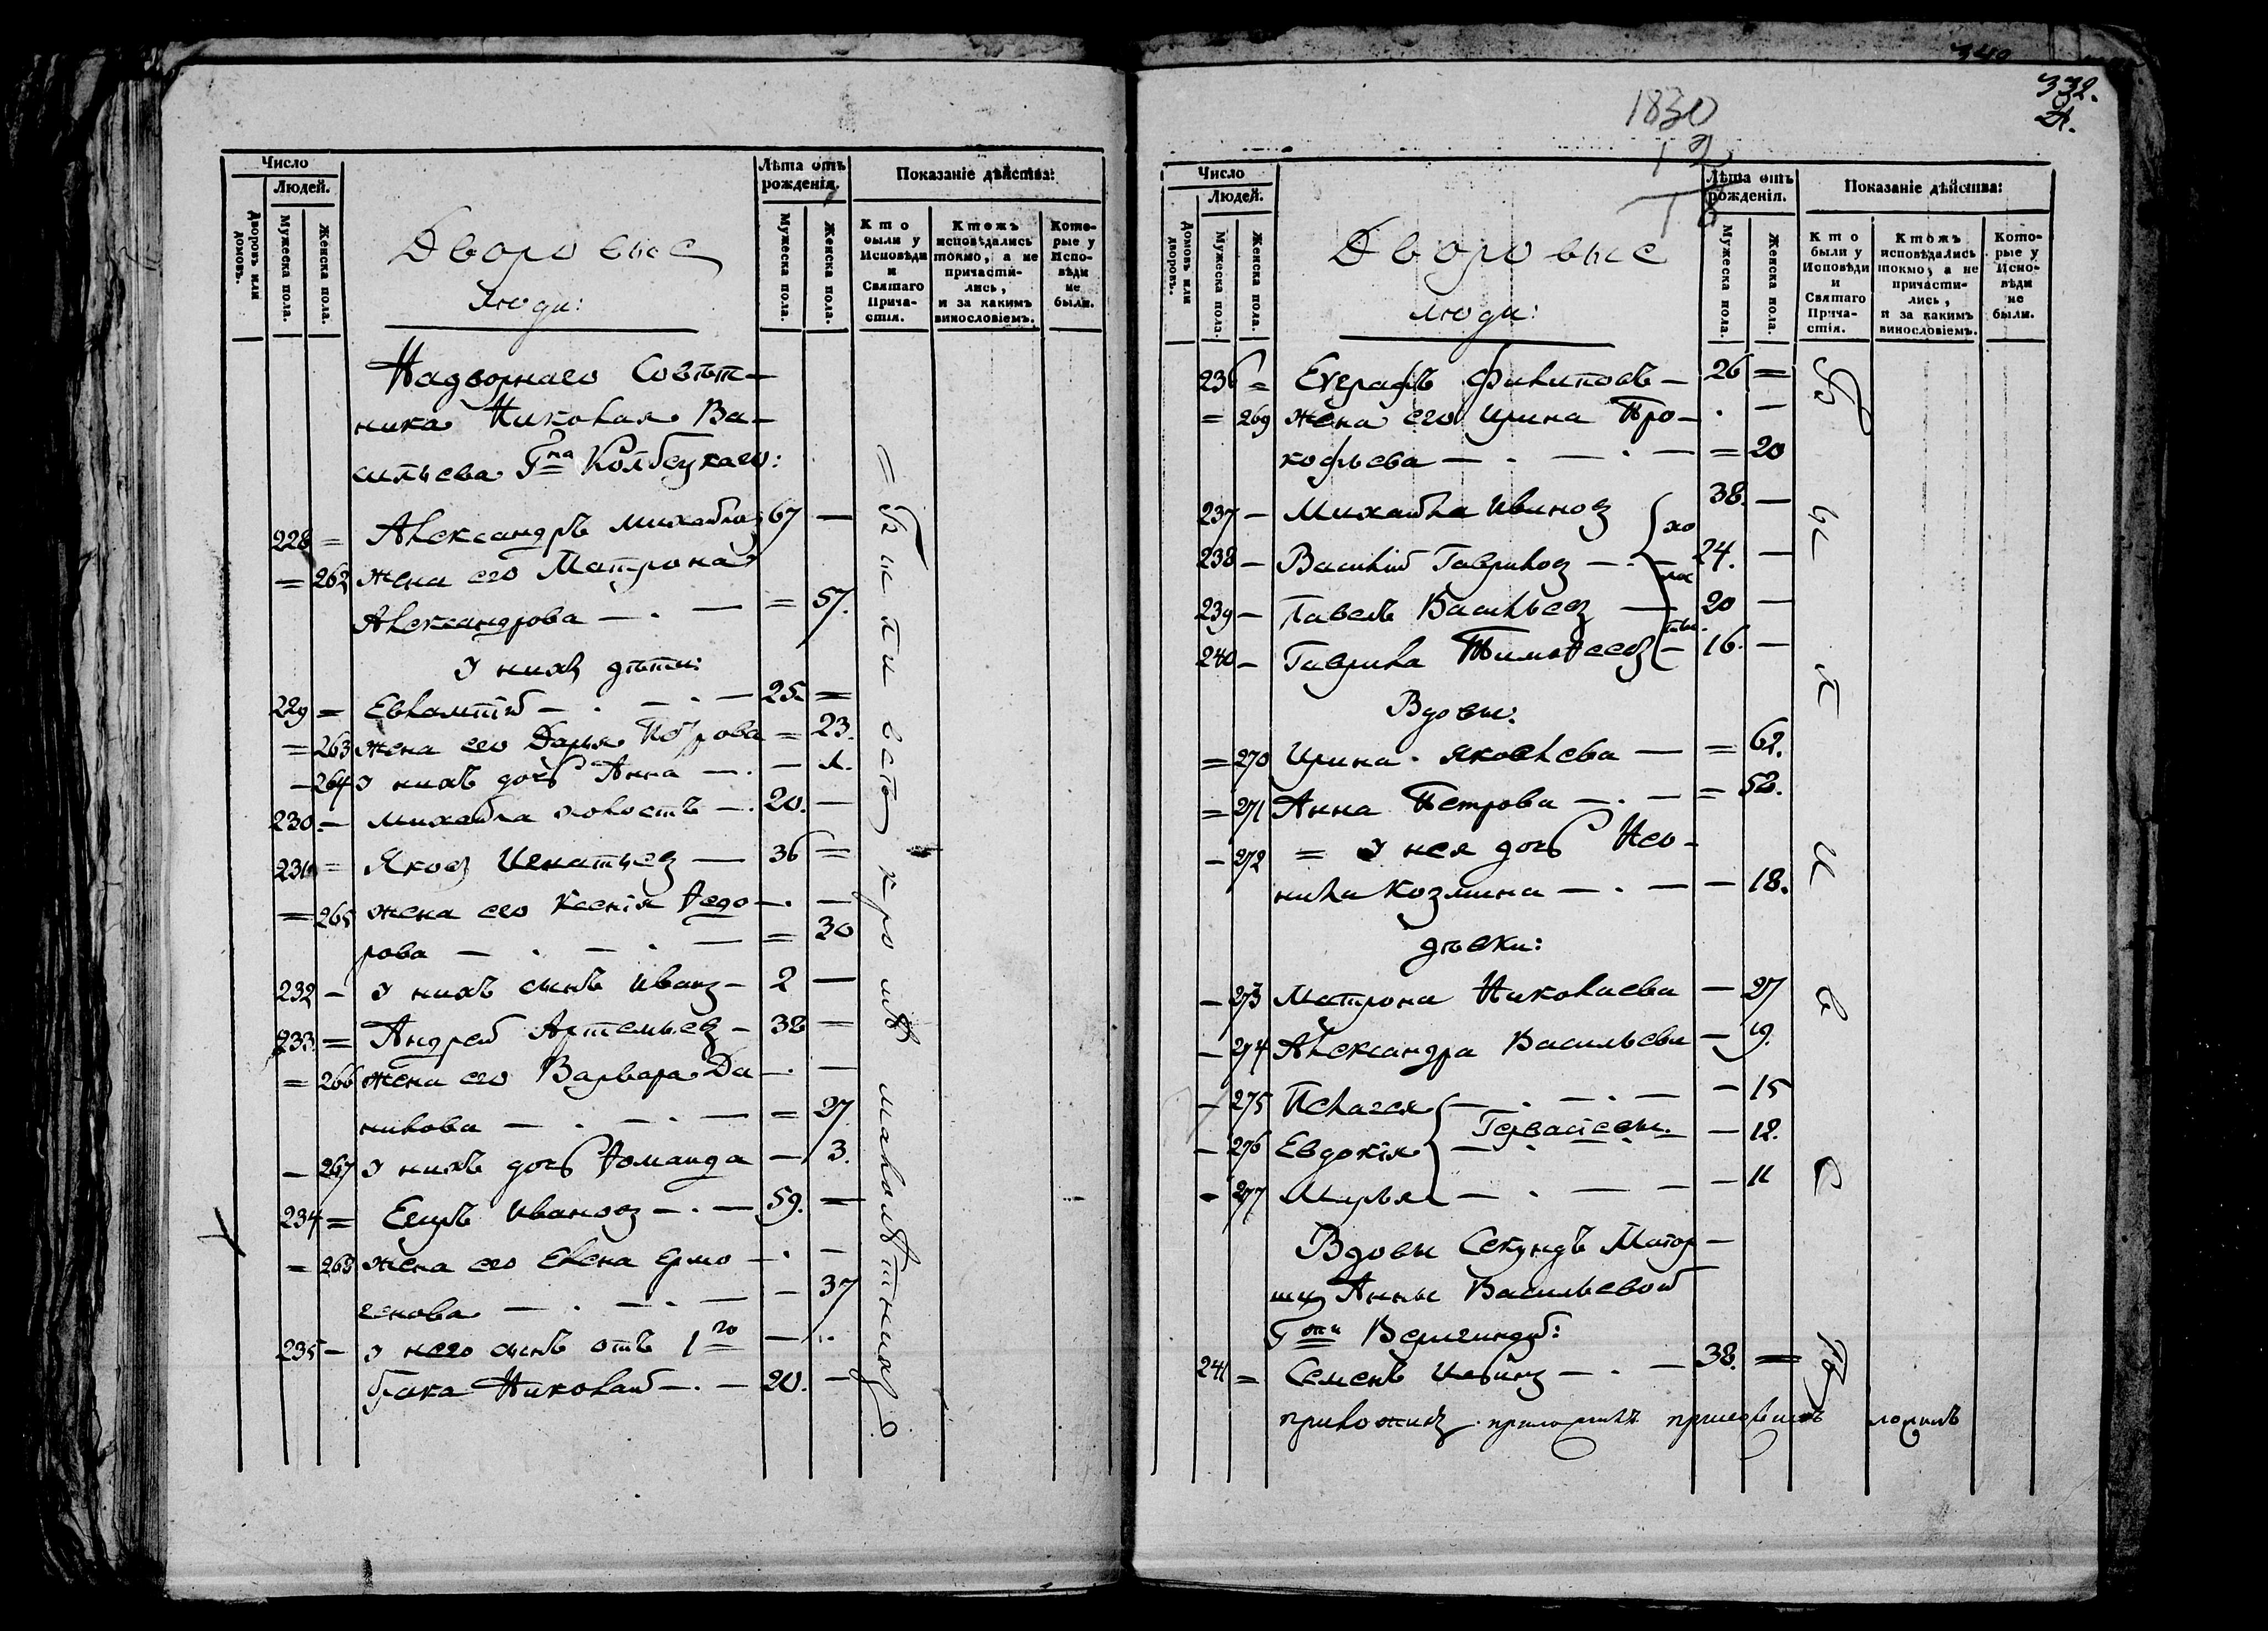 Число
Людей.
Дворовъ или домовъ.
Мужеска пола.
Женска пола.
Дворовые
люди:
Лѣта отъ рожденія.
Мужеска пола.
Женска пола.
Показаніе дѣйства:
Кто были у Исповѣди и Святаго Прича-стія.
Ктожъ исповѣдались токмо, а не причасти-лись, и за какимъ винословіемъ.
Кото-рые у Испо-вѣди не были.
Надворнаго Совѣт-
ника Николая Ва-
сильева Гна Колбецкаго:
228 = Александръ Михайловъ 67 —
= 262 жена его Матрона
Александрова — . — = 57.
У нихъ дѣти:
229 = Евлампій — . — . — 25. =
= 263 жена его Дарья Петрова = 23.
— 264 У нихъ дочь Анна — . — 1.
230. — Михайла холостъ — . 20. —
231 = Яковъ Игнатьевъ — 36 =
= 265 жена его Ксенія Ѳедо — . —
рова — . — . — = 30
232 — У нихъ сынъ Иванъ — 2 —
233. = Андрей Артемьевъ — 38 =
= 266 жена его Варвара Да — . —
нилова — . — . — = 27
— 267 У нихъ дочь Ѳоманда — 3.
234 = Егоръ Ивановъ — . — 59. =
= 268 жена его Елена Ермо — . —
генова — . — . — — 37
235 — У него сынъ отъ 1го —
брака Николай — . — 20. —
= Были вси кромѣ малолѣтнихъ
1830
12
18
340
332.
Число
Людей.
Домовъ или дворовъ.
Мужеска пола.
Женска пола.
Дворовые
люди:
Лѣта отъ рожденія.
Мужеска пола.
Женска пола.
Показаніе дѣйства:
Кто были у Исповѣди и Святаго Прича-стія.
Ктожъ исповѣдались токмо, а не причасти-лись, и за какимъ винословіемъ.
Кото-рые у Испо-вѣди не были.
236 = Евграфъ Филиповъ — 26 =
= 269 жена его Ирина Про — . —
кофьева — . — . — = 20
237 — Михайла Ивановъ 38. —
238 — Василій Гавриловъ — . — 24. —
239 — Павелъ Васильевъ — 20 —
240 — Гаврила Тимоѳеевъ — 16. —
хо
лос
Вдовы:
= 270 Ирина Яковлева — = 62.
= 271 Анна Петрова — . — = 52.
— 272 = У нея дочь Нео-
нила Козмина — . — — 18.
дѣвки:
— 273 Матрона Николаева — 27
— 274 Александра Васильева — 19.
— 275 Пелагея — . — . — — 15
— 276 Евдокія — 12.
— 277 Марья — . — — — 11
Вдовы Секундъ Маіор —
ши Анны Васильевой
241 = Семенъ 38. =